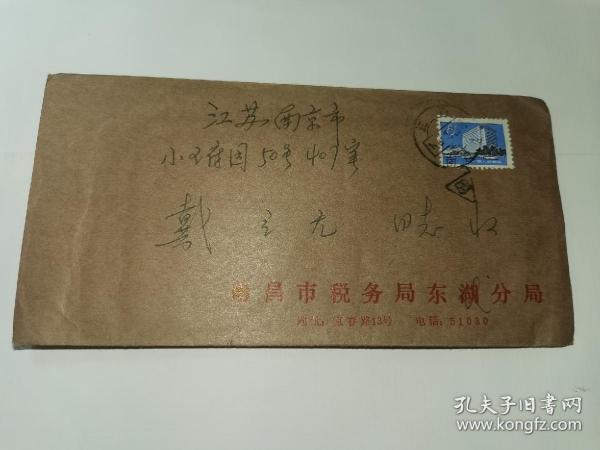 江苏南京市
小王府园50号407室
戴立尤 同志收
南昌市税务局东湖分局
地址：宜春路13号 电话：51030
孔夫子旧书网
www.kongfz.com